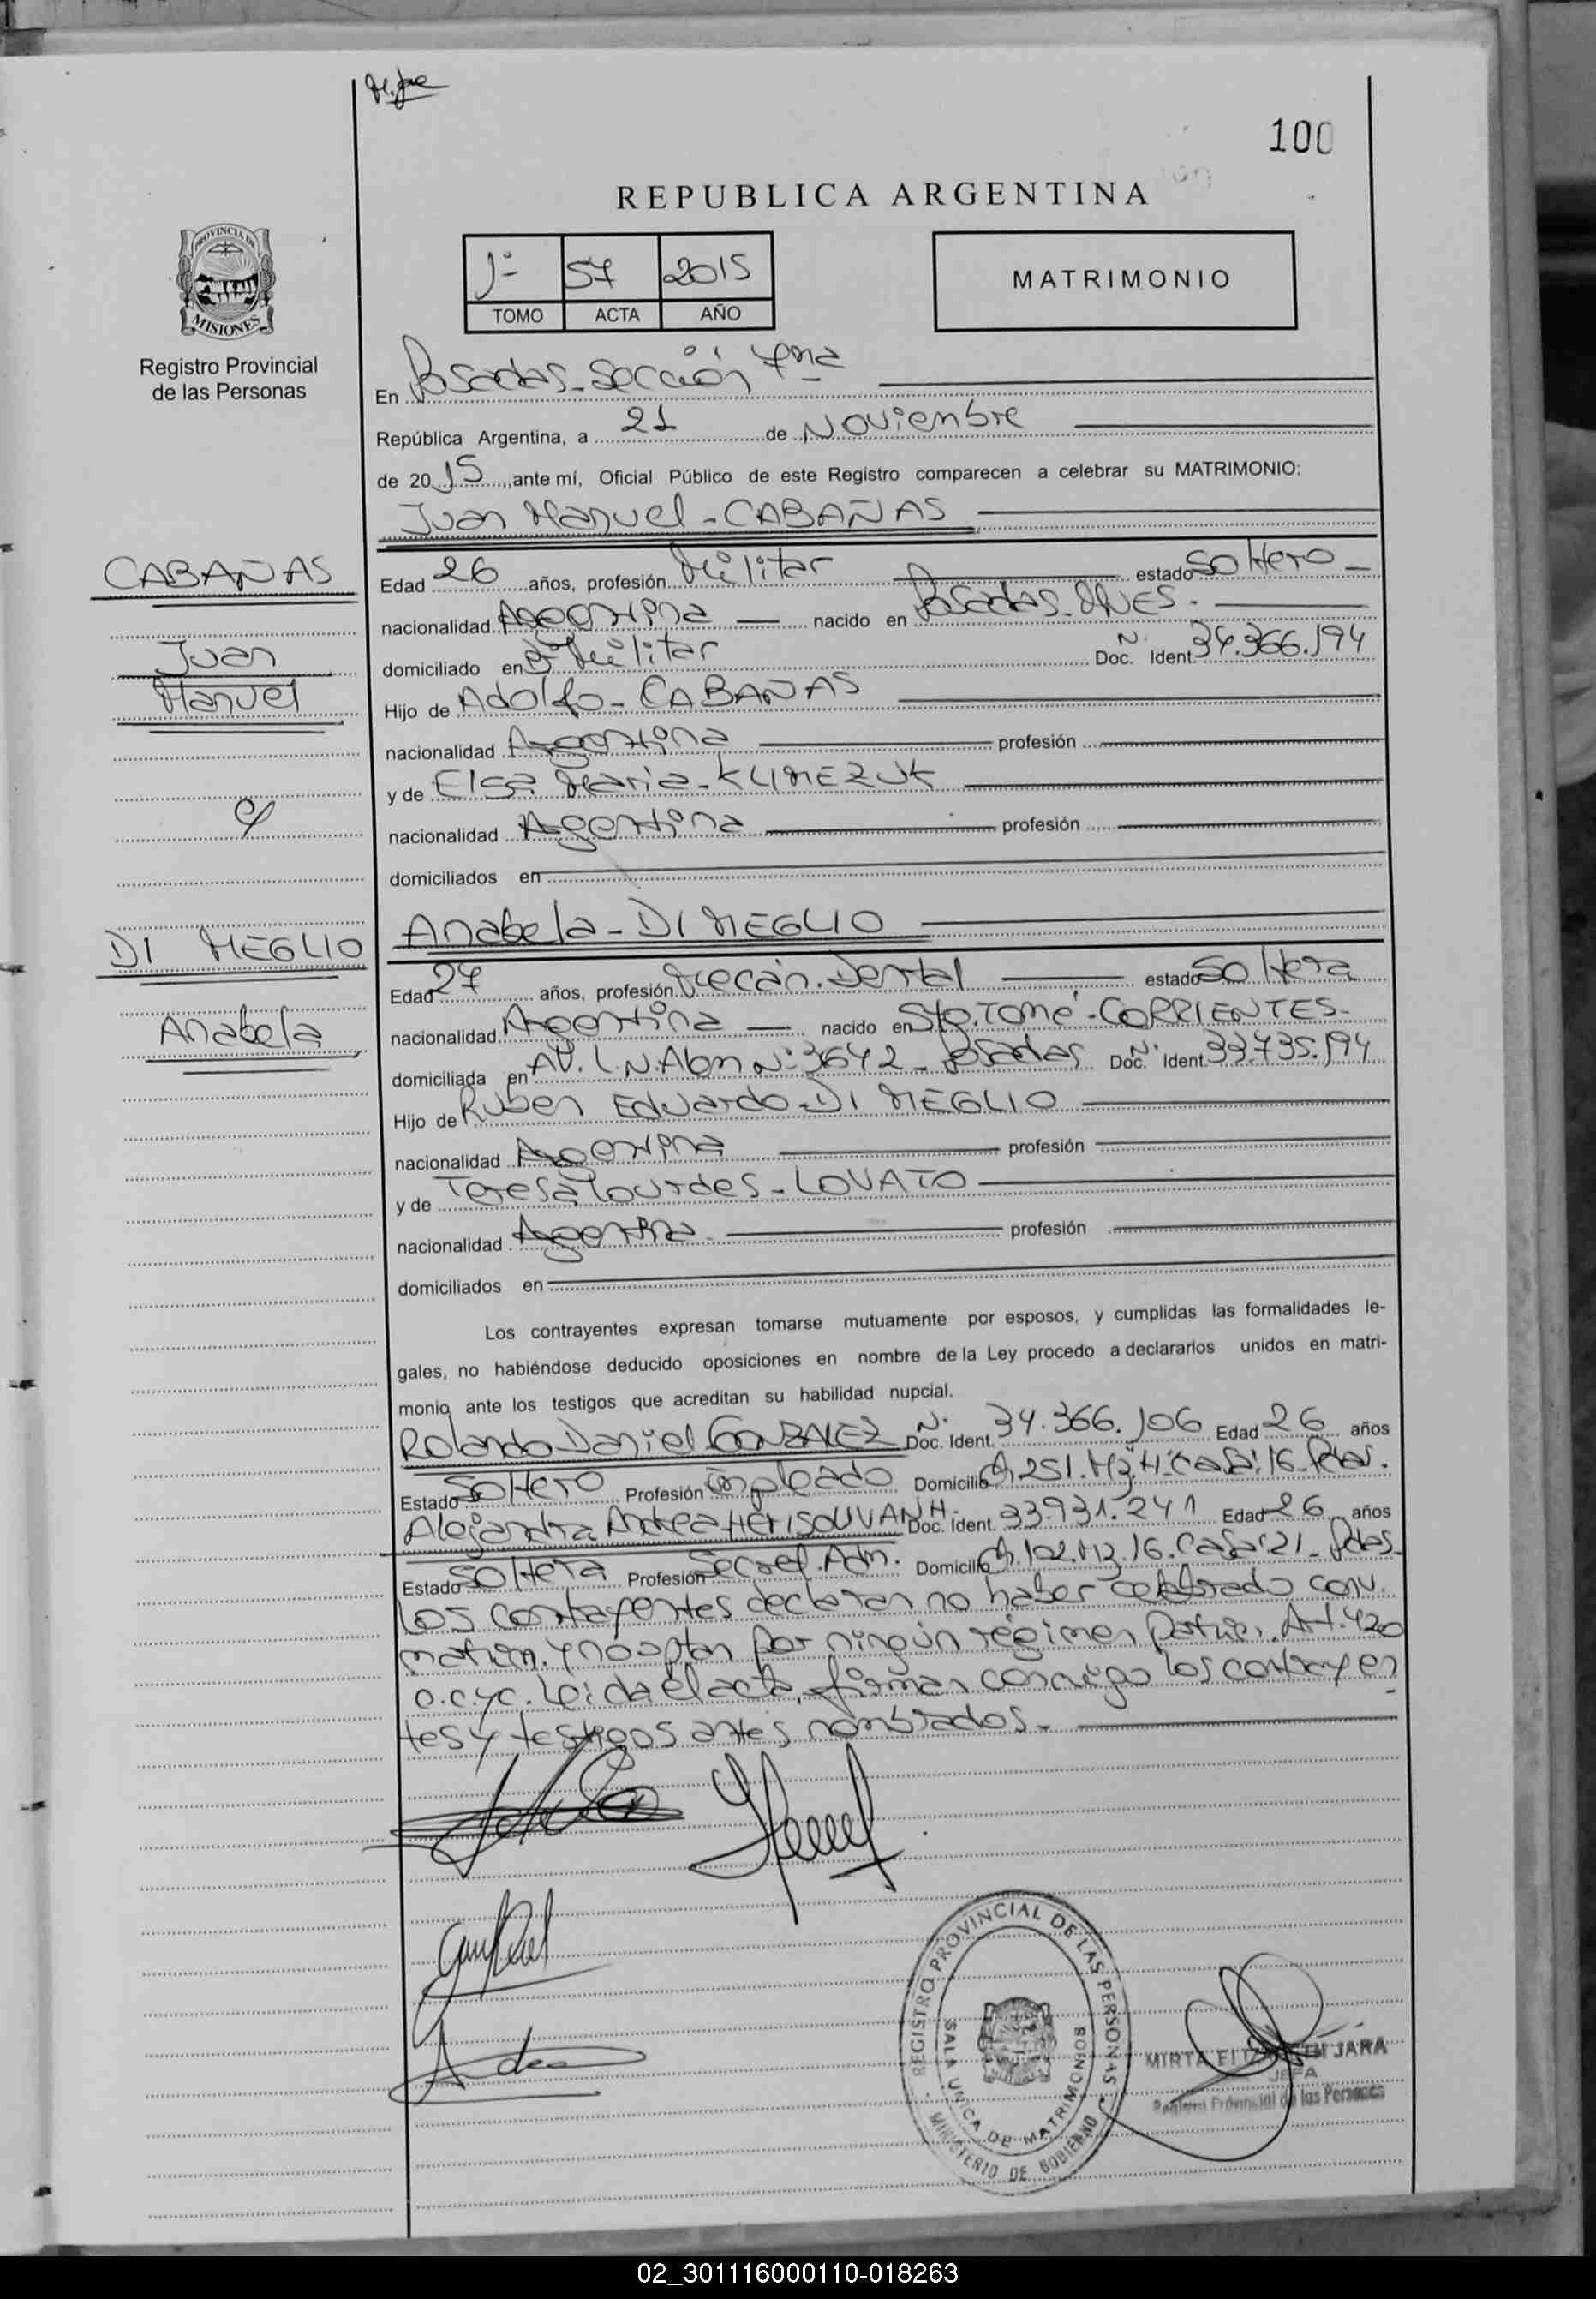 100
REPUBLICA ARGENTINA
PROVINCIA DE
MISIONES
Registro Provincial
de las Personas
1º 57 2015
TOMO ACTA AÑO
MATRIMONIO
En Posadas - Sección 4ma
República Argentina, a 21 de Noviembre
de 2015, ante mí, Oficial Público de este Registro comparecen a celebrar su MATRIMONIO:
Juan Manuel - CABAÑAS
CABAÑAS
Juan
Manuel
Edad 26 años, profesión Militar estado Soltero
nacionalidad Argentina nacido en Posadas
domiciliado en Militar Doc. Ident. N. 34.366.194
Hijo de Adolfo - CABAÑAS
nacionalidad Argentina profesión
y de Elsa Maria - KLIMEZUK
nacionalidad Argentina profesión
domiciliados en
Anabela - DI MEGLIO
DI MEGLIO
Anabela
Edad 27 años, profesión Mecán. Dental estado Soltera
nacionalidad Argentina nacido en Sto. Tomé - CORRIENTES -
domiciliada en AV. L.N.Alem Nº 3642 - Posadas Doc. Ident. N. 33.735.194
Hijo de Ruben Eduardo - DI MEGLIO
nacionalidad Argentina profesión
y de Teresa Lourdes - LOVATO
nacionalidad Argentina profesión
domiciliados en
Los contrayentes expresan tomarse mutuamente por esposos, y cumplidas las formalidades le-
gales, no habiéndose deducido oposiciones en nombre de la Ley procedo a declararlos unidos en matri-
monio ante los testigos que acreditan su habilidad nupcial.
Rolando Daniel GONZALEZ Doc. Ident. N. 34.366.106 Edad 26 años
Estado Soltero Profesión Empleado Domicilio Ch. 251. Mz. H. Casa: 16. Pdas.
Alejandra Andrea HERISOUVANH Doc. Ident. 33.931.241 Edad 26 años
Estado Soltera Profesión Secret. Adm. Domicilio Ch. 102. Mz. 16. Casa: 21 - Pdas.
Los contrayentes declaran no haber celebrado conv.
matrim. y no optan por ningún régimen Patrim. Art. 420
C.C.yC. Leída el acta, firman conmigo los contrayen
tes y testigos antes nombrados. -
REGISTRO PROVINCIAL DE LAS PERSONAS
SALA UNICA DE MATRIMONIOS
MINISTERIO DE GOBIERNO
MIRTA JARA
JEFA
Registro Provincial de las Personas
02_301116000110-018263